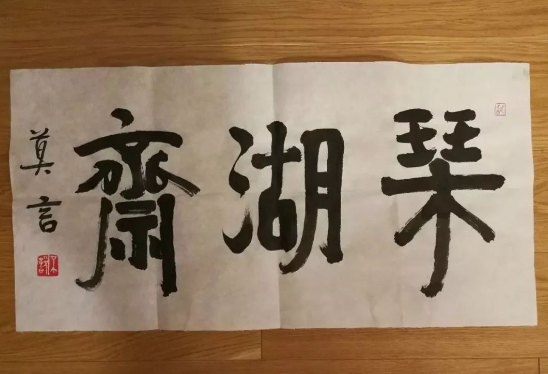 琹湖齋
莫言